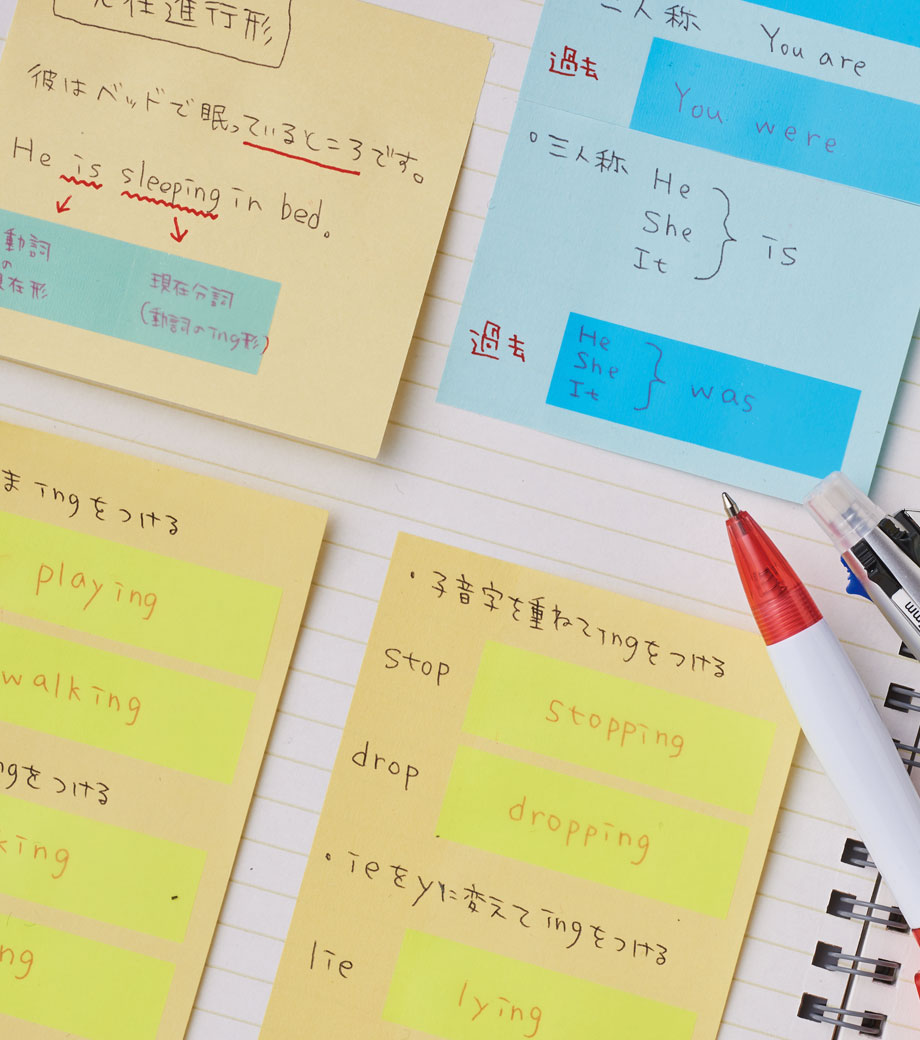 在進行形
彼はベッドで眠っているところです。
He is sleeping in bed.
動詞
の
現在形
現在分詞
(動詞のing形)
二人称 You are
過去 You were
○三人称 He
She
It
is
過去 He
She
It
was
まingをつける
playing
walking
ngをつける
king
ng
・子音字を重ねてingをつける
stop stopping
drop dropping
・ieをyに変えてingをつける
lie lying